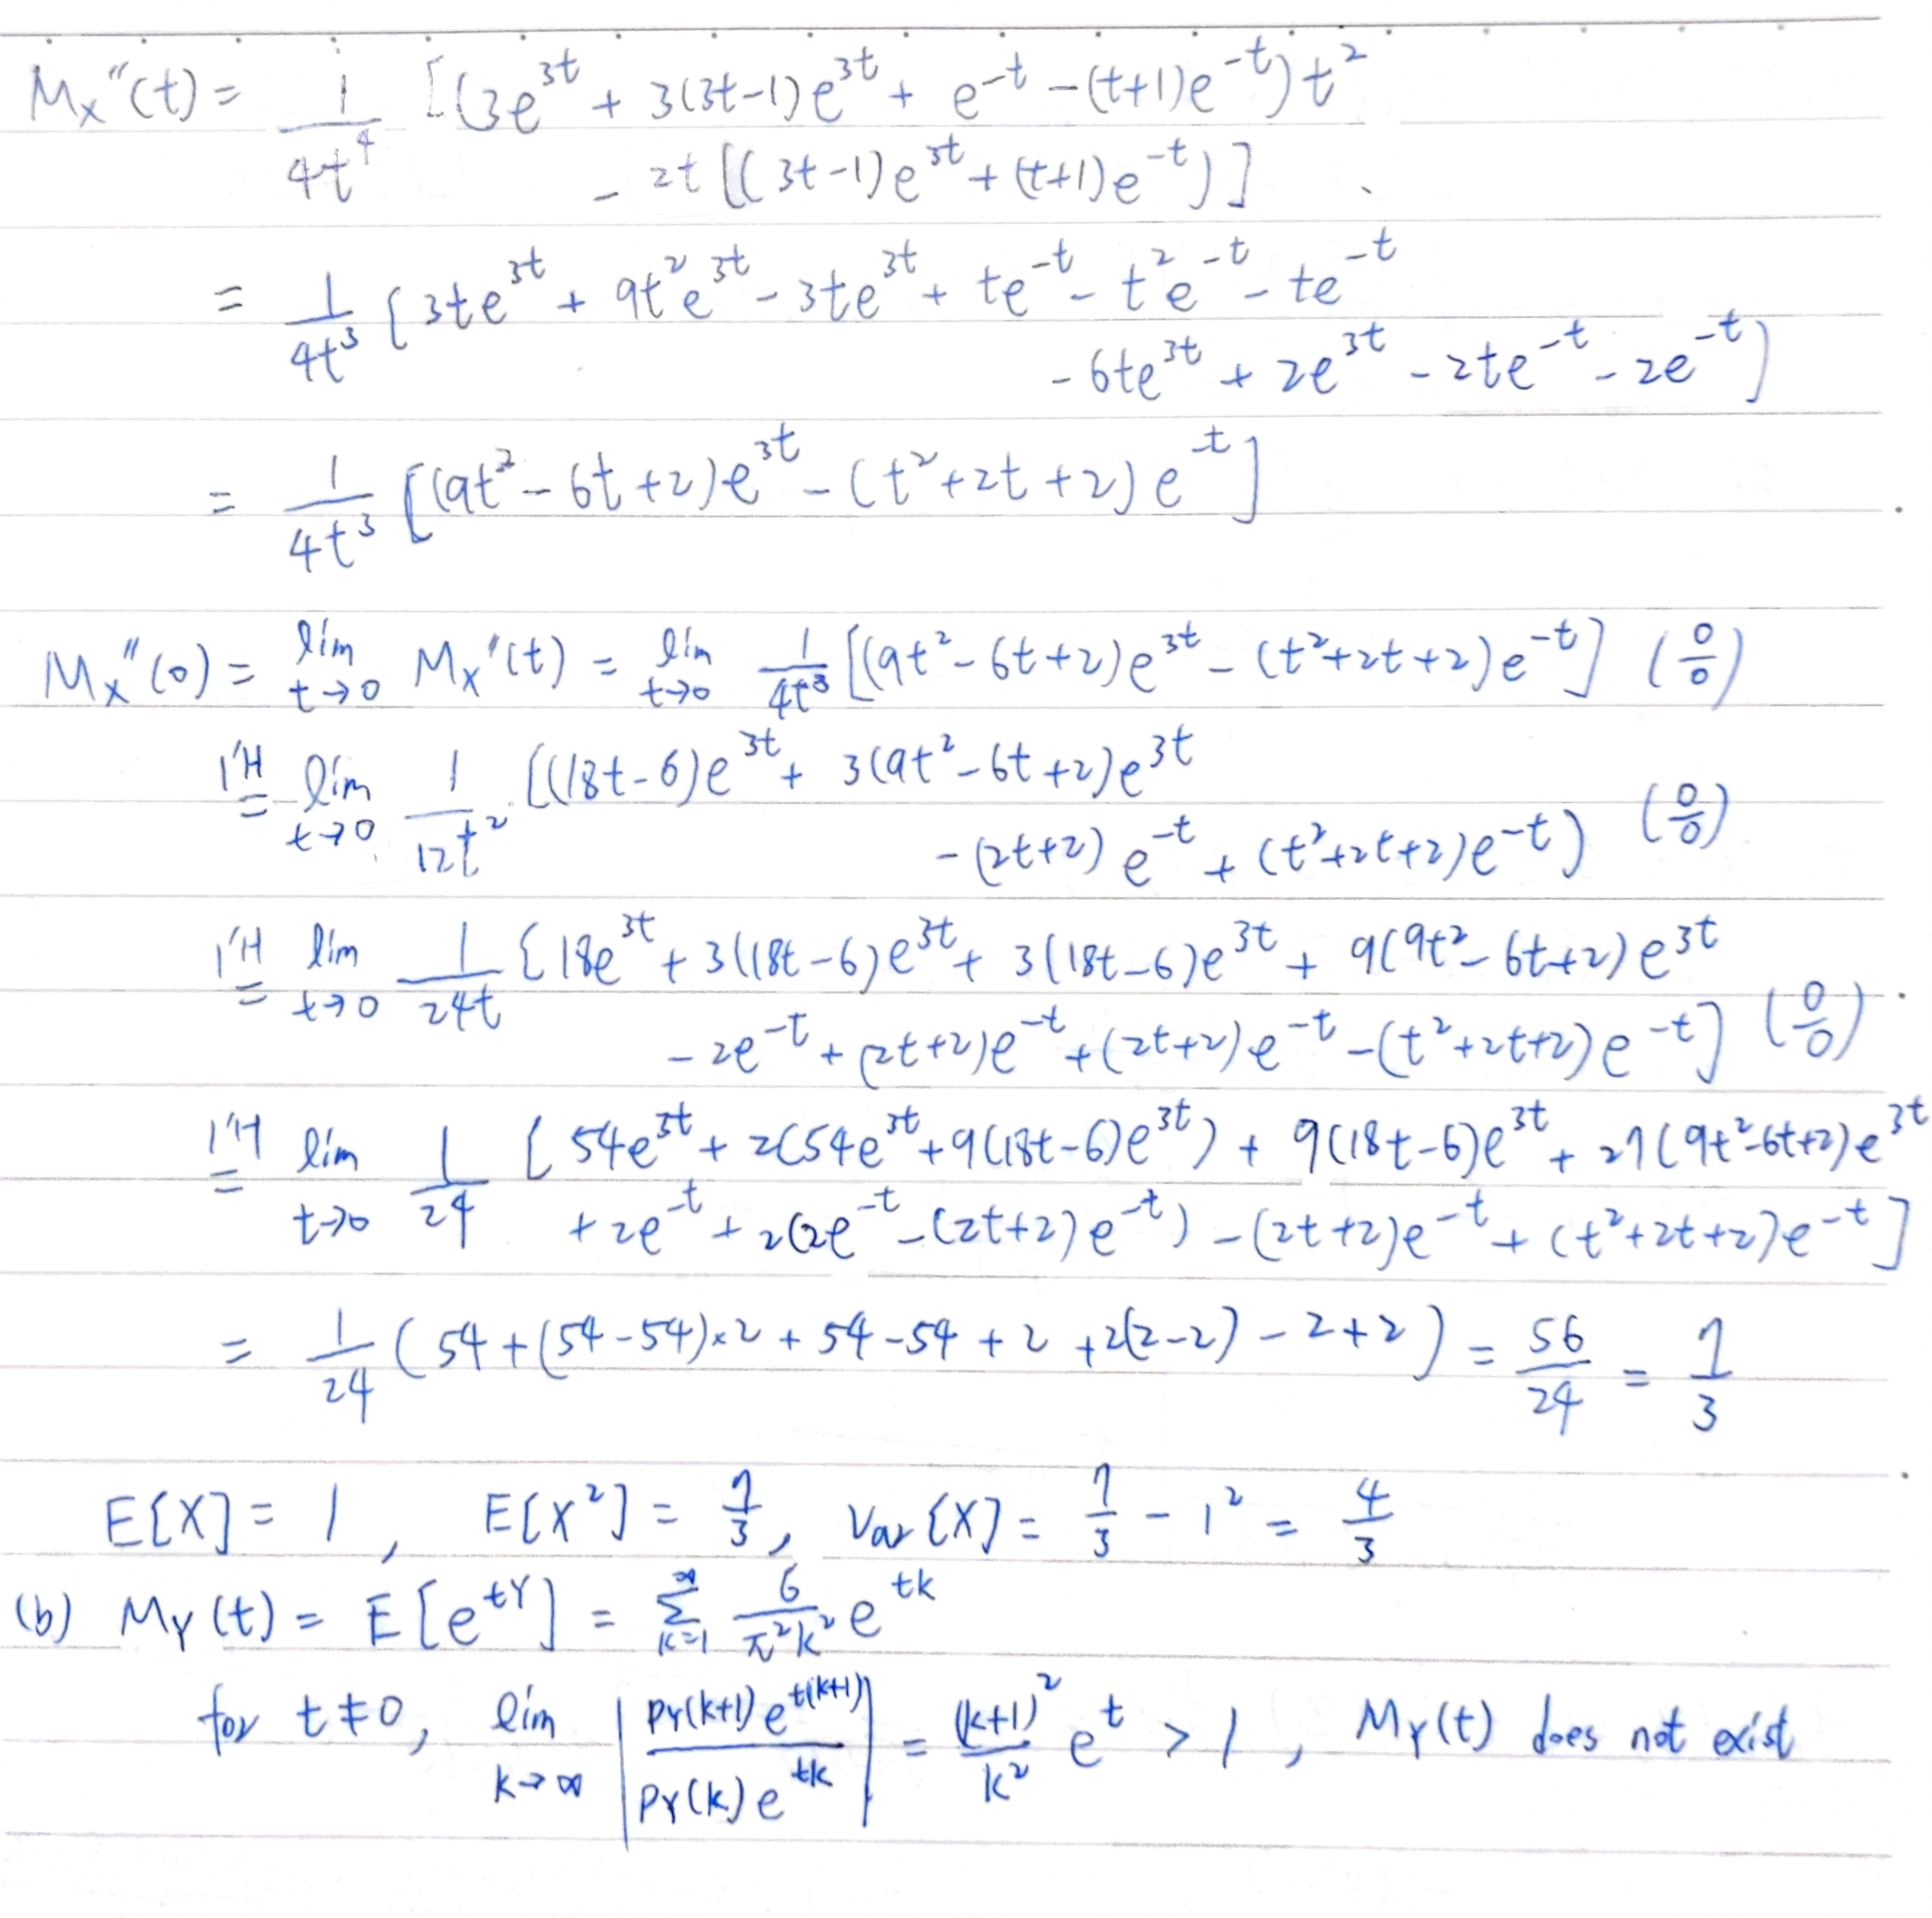 Mx''(t) = 1/(4t^4) [(3e^{3t} + 3(3t-1)e^{3t} + e^{-t} - (t+1)e^{-t}) t^2
- 2t [((3t-1)e^{3t} + (t+1)e^{-t})]
= 1/(4t^3) [3te^{3t} + 9t^2e^{3t} - 3te^{3t} + te^{-t} - t^2e^{-t} - te^{-t}
- 6te^{3t} + 2e^{3t} - 2te^{-t} - 2e^{-t}]
= 1/(4t^3) [(9t^2 - 6t + 2)e^{3t} - (t^2 + 2t + 2)e^{-t}]
Mx''(0) = lim t→0 Mx'(t) = lim t→0 1/(4t^3) [(9t^2 - 6t + 2)e^{3t} - (t^2 + 2t + 2)e^{-t}] (0/0)
l'H = lim t→0 1/(12t^2) [(18t-6)e^{3t} + 3(9t^2 - 6t + 2)e^{3t}
- (2t+2)e^{-t} + (t^2 + 2t + 2)e^{-t}] (0/0)
l'H = lim t→0 1/(24t) [18e^{3t} + 3(18t-6)e^{3t} + 3(18t-6)e^{3t} + 9(9t^2 - 6t + 2)e^{3t}
- 2e^{-t} + (2t+2)e^{-t} + (2t+2)e^{-t} - (t^2 + 2t + 2)e^{-t}] (0/0)
l'H = lim t→0 1/24 [54e^{3t} + 2(54e^{3t} + 9(18t-6)e^{3t}) + 9(18t-6)e^{3t} + 27(9t^2 - 6t + 2)e^{3t}
+ 2e^{-t} + 2(2e^{-t} - (2t+2)e^{-t}) - (2t+2)e^{-t} + (t^2 + 2t + 2)e^{-t}]
= 1/24 (54 + (54-54)×2 + 54-54 + 2 + 2(2-2) - 2 + 2) = 56/24 = 7/3
E[X] = 1, E[X^2] = 7/3, Var[X] = 7/3 - 1^2 = 4/3
(b) M_Y(t) = E[e^{tY}] = Σ_{k=1}^{∞} 6/(π^2k^2) e^{tk}
for t ≠ 0, lim k→∞ |P_Y(k+1)e^{t(k+1)} / P_Y(k)e^{tk}| = (k+1)^2/k^2 e^t > 1, M_Y(t) does not exist